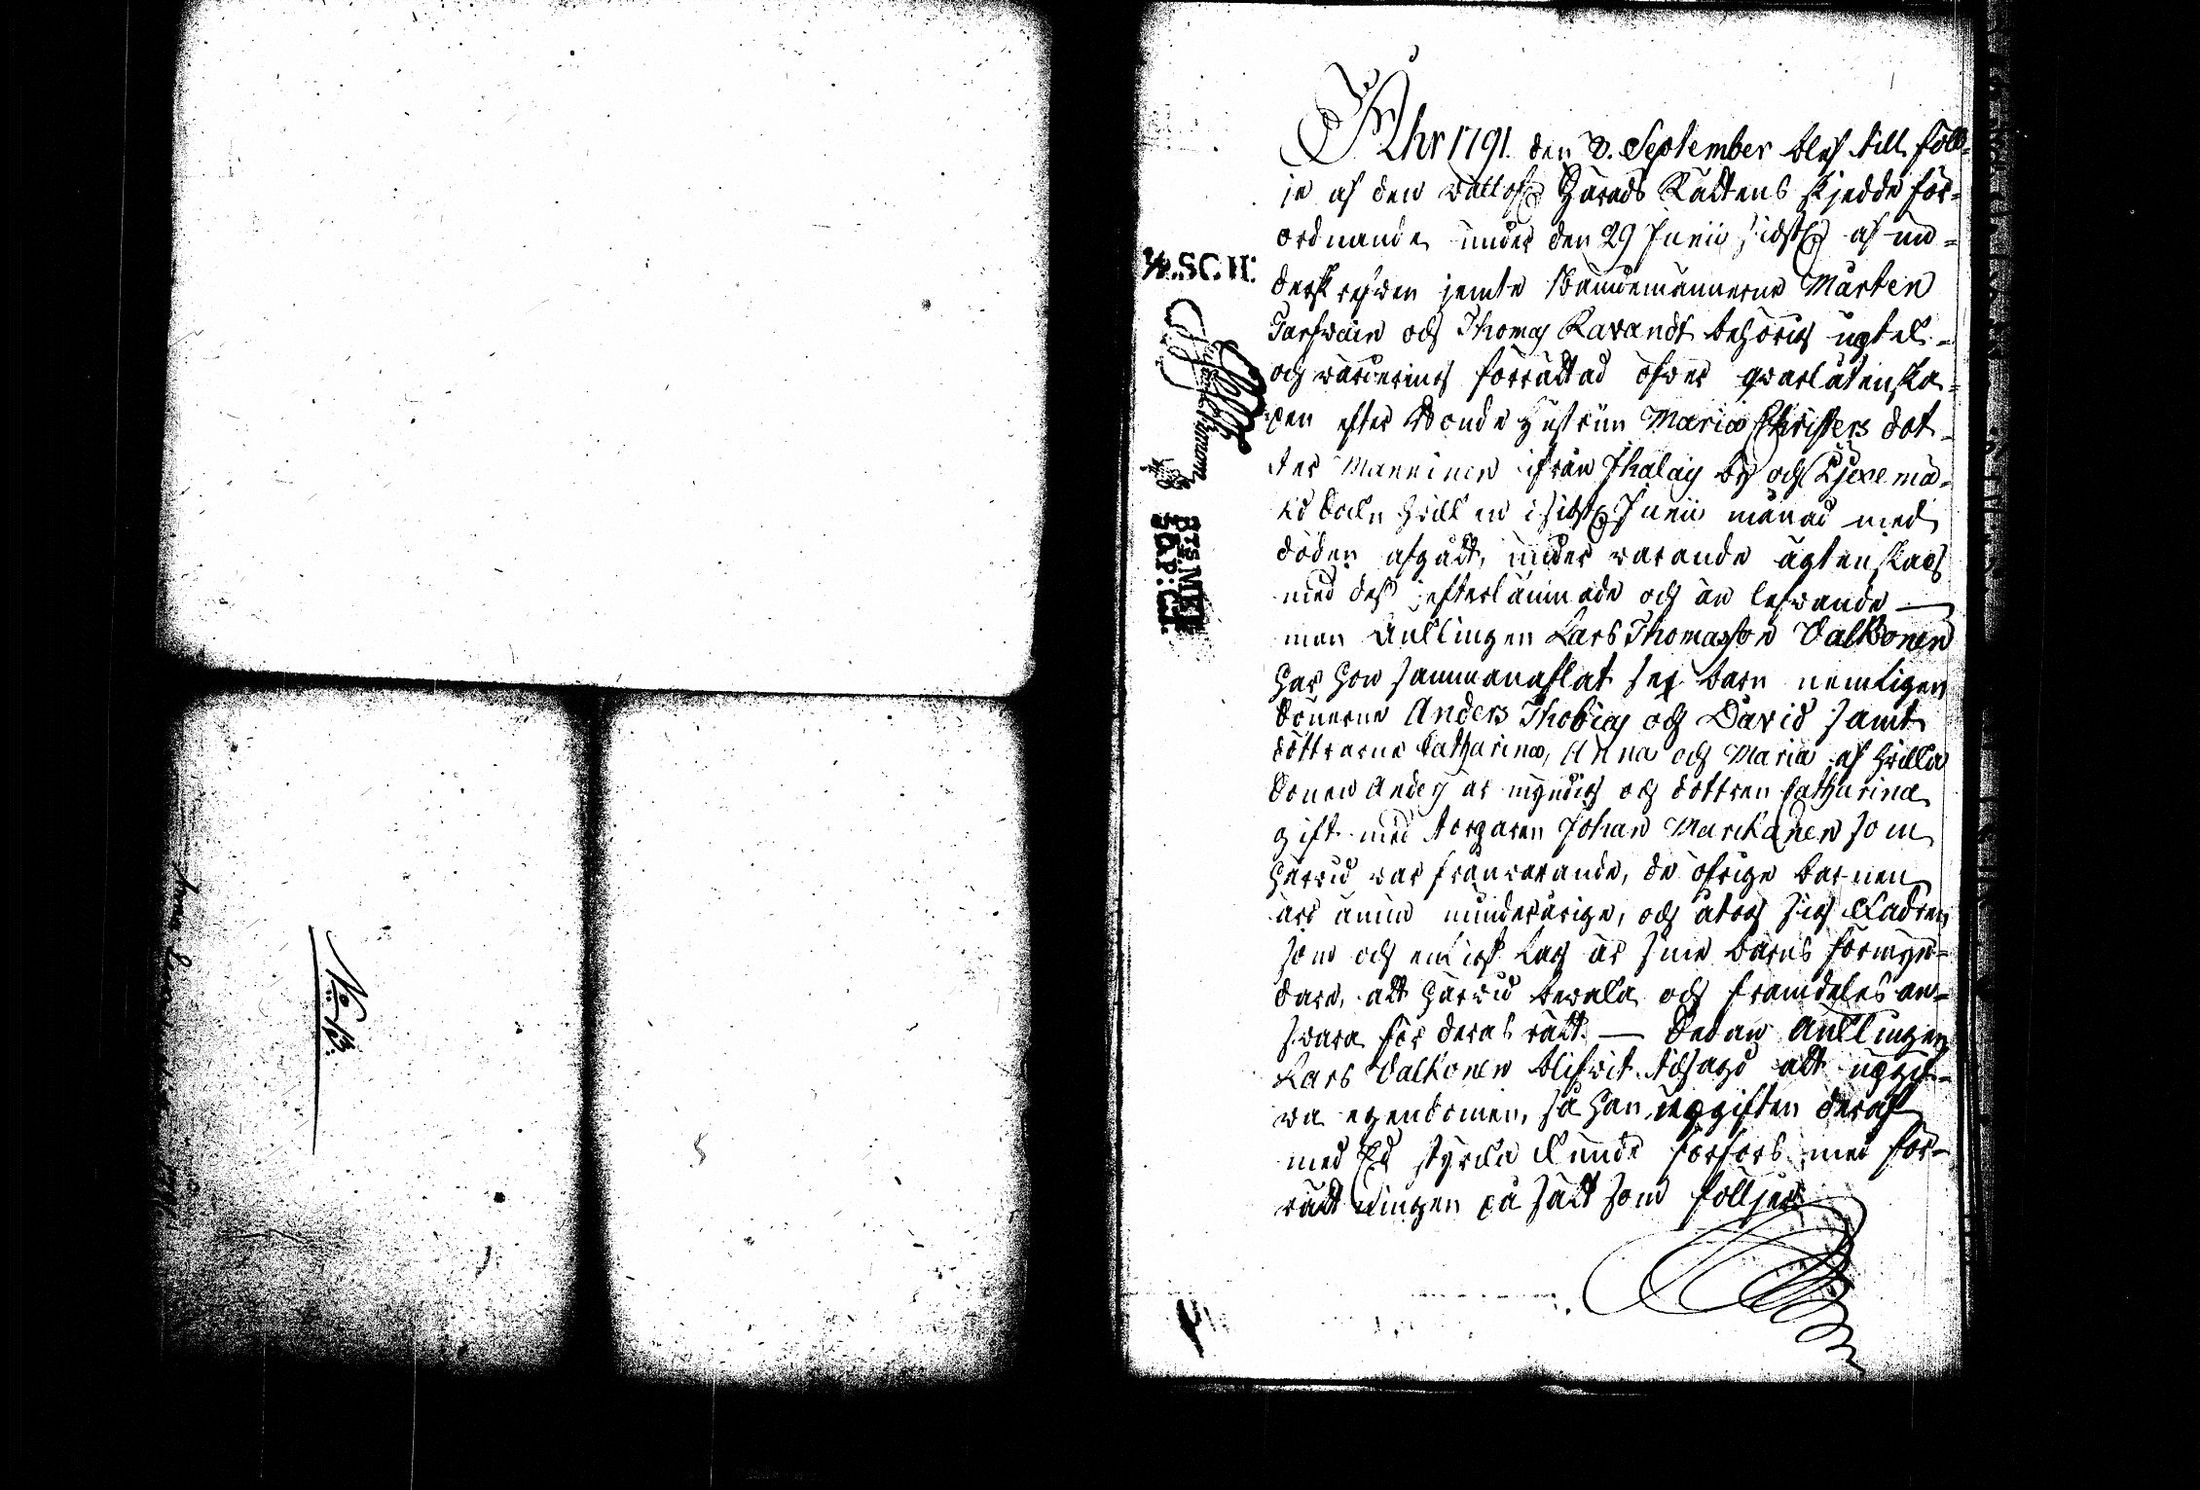 No 13.
Åhr 1791. den 8. September blef till föll-
je af den Härads Rättens skjedde för-
ordnande under den 29 Junii sidstl. af un-
derskrefven jemte Nämndemännerne Mårten
och Thomas Kavandt behörig uptek-
och värdering förrättad öfver qvarlåtenska-
pen efter Bonde Hustrun Maria Christers dot-
ter Manninen ifrån Jhalais by och
som i sidstl. Junii månad med
döden afgådt, under varande ägtenskap
med dess efterlämnade och än lefvande —
man Änklingen Lars Thomasson Valkonen
har hon sammanaflat sex barn nemligen
Sönerne Anders Thobias och David samt
döttrarne Catharina, Anna och Maria af hvilka
Sonen Anders är myndig och dottren Catharina
gift med Torparen Johan Manckanen som
härvid var frånvarande, de öfrige barnen
äro ännu minderårige, och åtog sig Fadren
som och enligt Lag är sine barns förmyn-
dare, att härvid bevaka och framdeles an-
svara för deras rätt. — Sedan Änklingen
Lars Valkonen blifvit tilsagd att uppgif-
va egendomen, så han uppgiften deraf
med Ed styrka kunde förfors med för-
rättningen på sätt som följer
1/2.SCH: